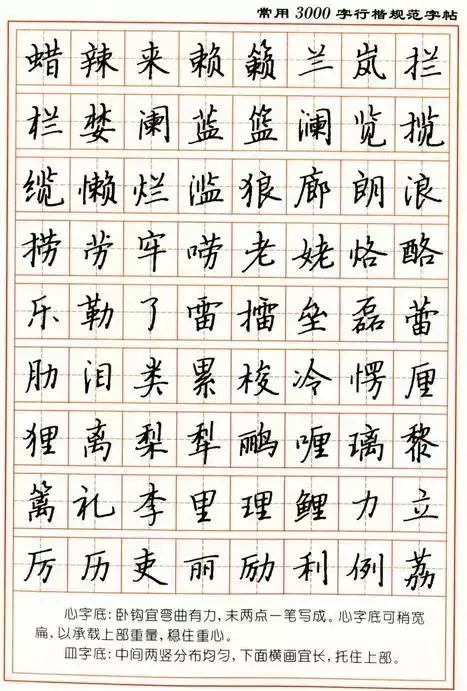 常用3000字行楷规范字帖
蜡辣来赖籁兰岚拦
栏婪阑蓝篮澜览揽
缆懒烂滥狼廊朗浪
捞劳牢唠老姥烙酪
乐勒了雷擂垒磊蕾
肋泪类累棱冷愣厘
狸离梨犁鹂喱璃黎
篱礼李里理鲤力立
厉历吏丽励利例荔
心字底:卧钩宜弯曲有力,末两点一笔写成。心字底可稍宽
扁,以承载上部重量,稳住重心。
皿字底:中间两竖分布均匀,下面横画宜长,托住上部。